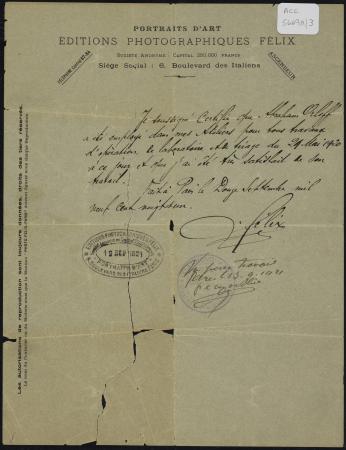 ACC
PORTRAITS D'ART
EDITIONS PHOTOGRAPHIQUES FÉLIX
SOCIÉTÉ ANONYME : CAPITAL 250.000 FRANCS
Siège Social : 6, Boulevard des Italiens
ASCENSEUR
Je soussigné Certifie que Abraham Orloff
a été employé dans mes Ateliers pour tous travaux
d'opération de laboratoire et tirage du 24 Mai 1920
à ce jour et que j'ai été très satisfait de son
travail.
Fait à Paris le Douze Septembre mil
neuf Cent vingt un.
Félix
EDITIONS PHOTOGRAPHIQUES FÉLIX
12 SEP 1921
PORTRAITS D'ART
6, BOULEVARD DES ITALIENS, PARIS
Les autorisations de reproduction sont intégralement données, droits des tiers réservés.